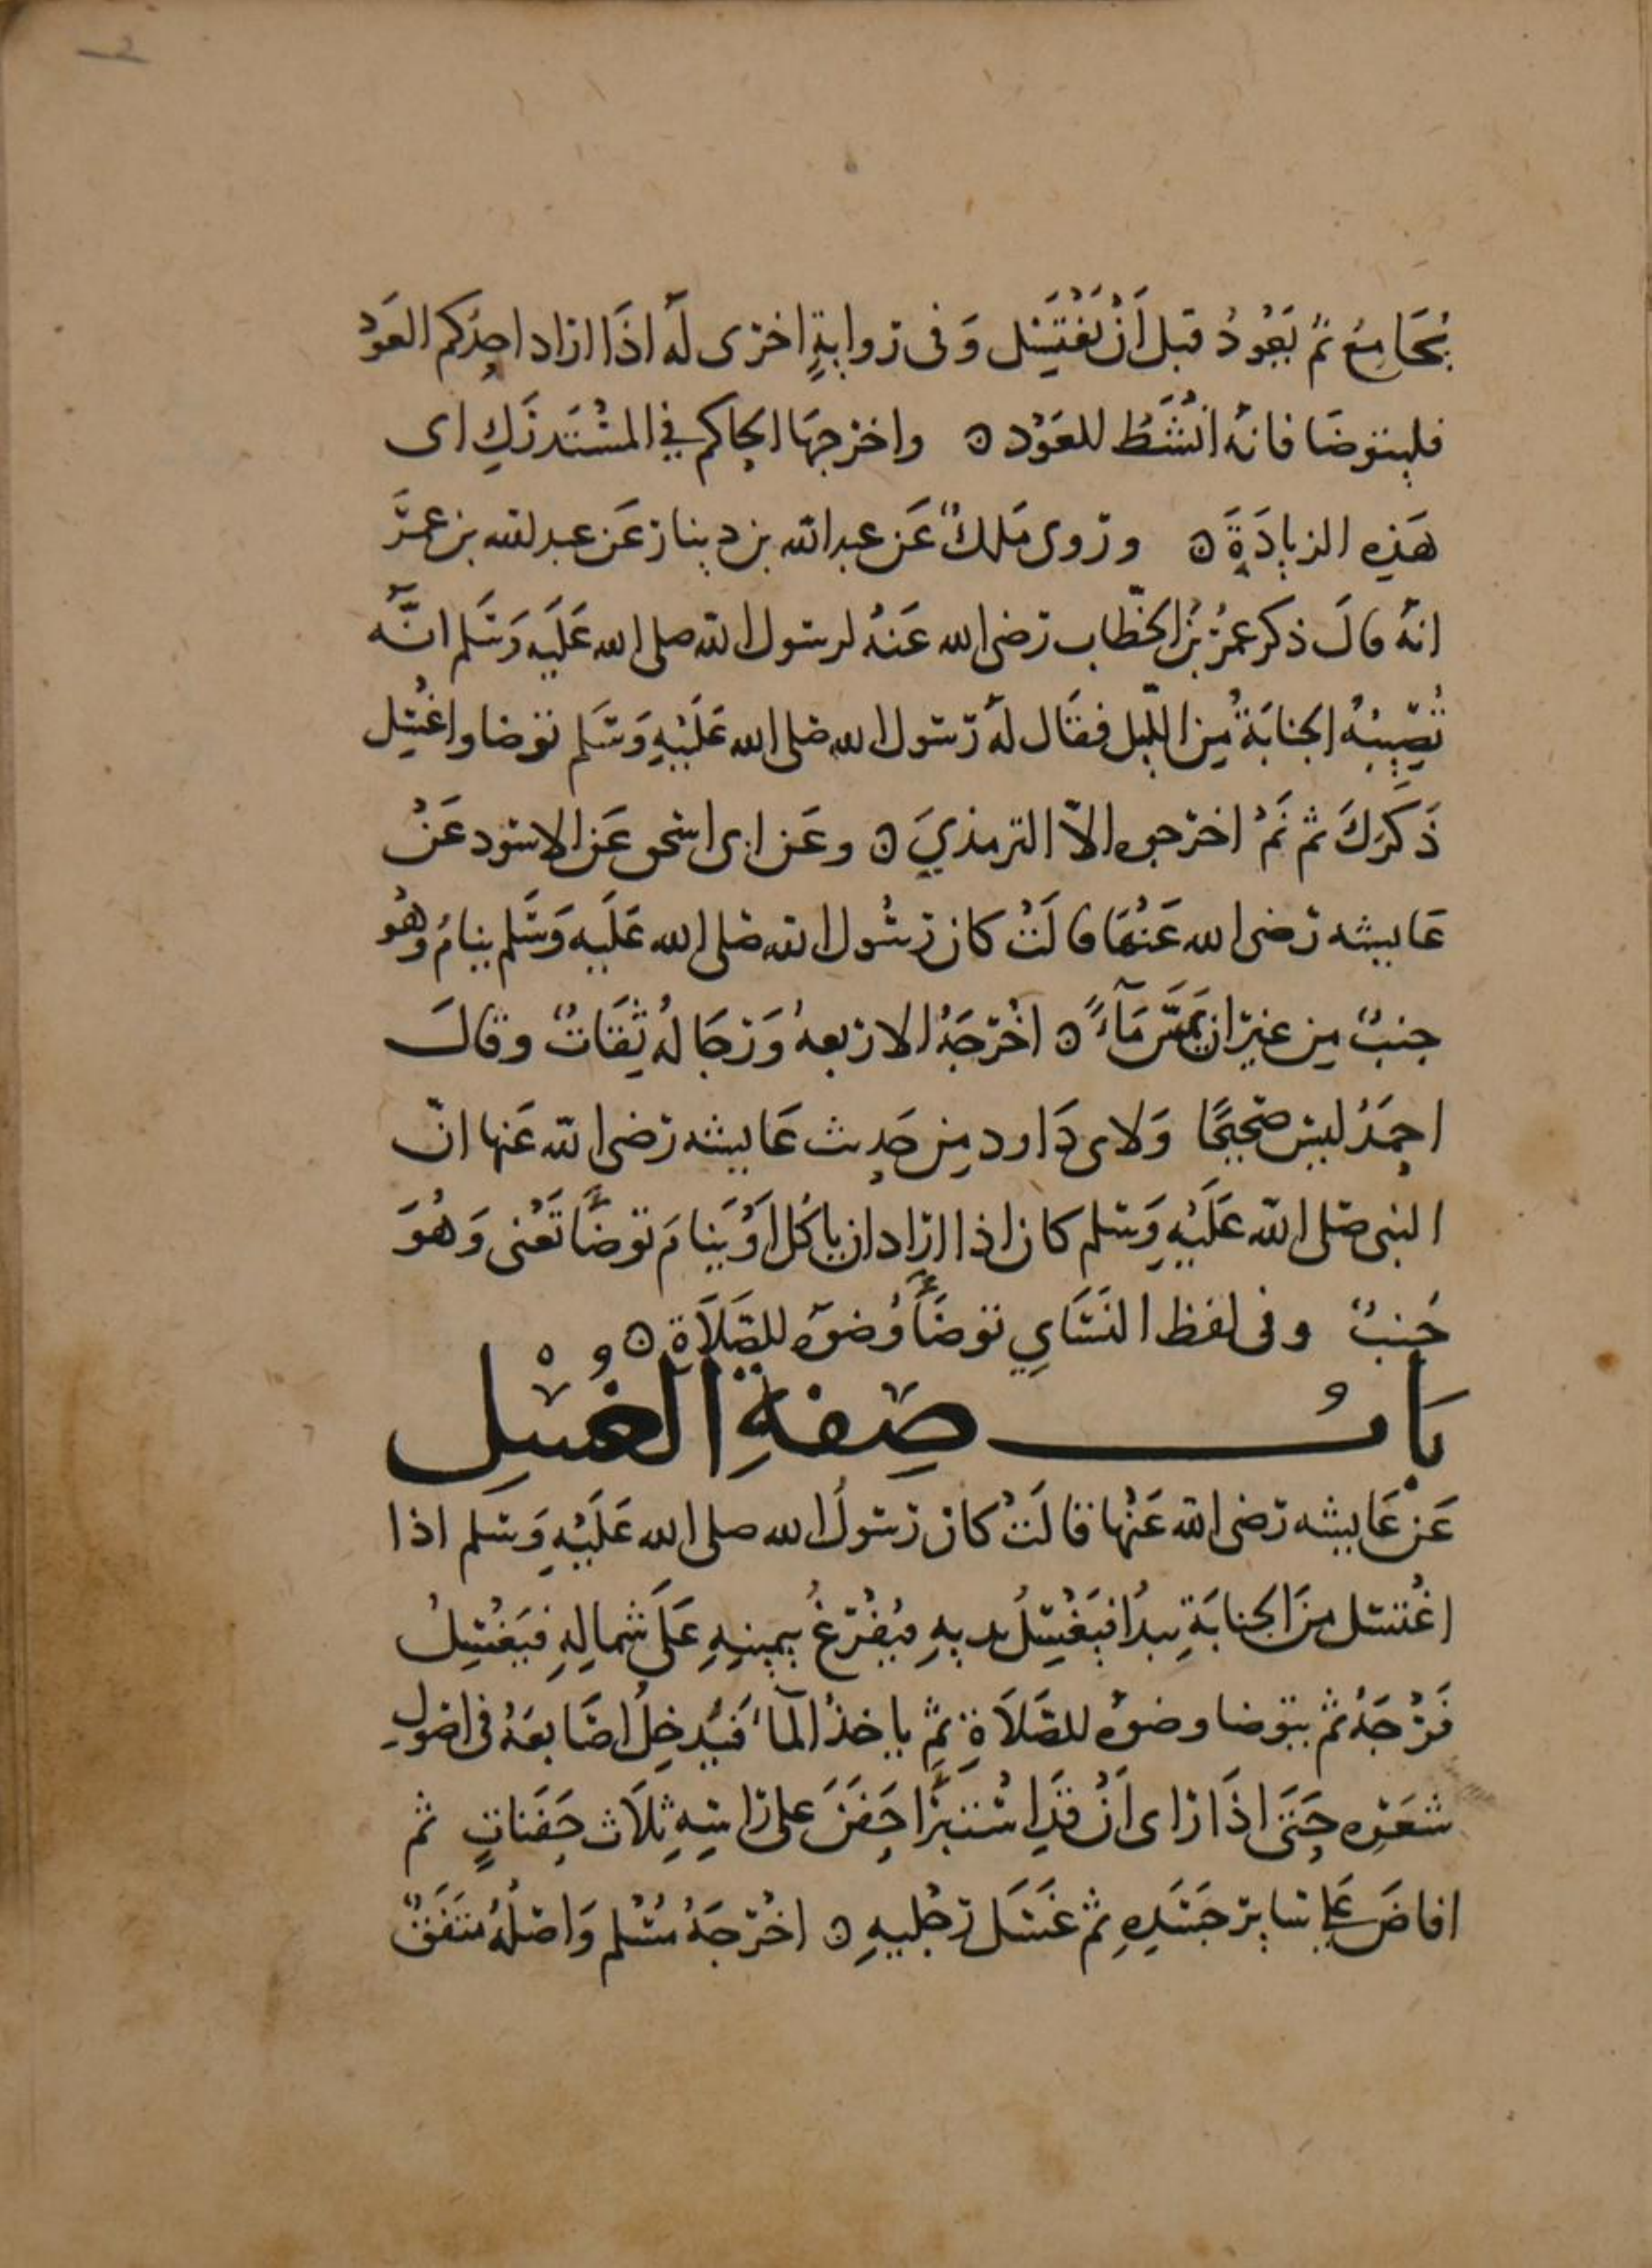 يُجَامِعُ ثُمَّ يَعُودُ قبل أَنْ يَغْتَسِل وَفى روايةٍ اخرى لَهُ اذَا اراد احدُكم العَوْدَ
فليتوضا فانهُ انْشَطُ للعَوْد ۵ واخرجهَا الحاكم في المسْتَدرَكِ اى
هَذِهِ الزيادَةِ ۵ وروى مَلكٌ عَن عبدالله بن دينار عَن عبدالله بن عمرَ
انهُ قالَ ذكر عمرُ بنُ الخطّاب رضى الله عَنهُ لرسول الله صلى الله عَلَيه وَسَلم انَّه
تُصِيبُهُ الجنابَةُ مِن اللّيل فقَال لهُ رَسول الله صَلى الله عَلَيْهِ وَسَلم توضا واغْسِل
ذَكَرَكَ ثم نَمْ اخرجوه الاّ الترمذيَ ۵ وعَن ابى اسحق عَن الاسود عَنْ
عَايشه رَضى الله عَنْهَا قالَتْ كان رَسُول الله صَلى الله عَلَيه وَسَلم ينامُ وهُو
جنبٌ مِن غيرِ ان يَمَسَّ مَآءً ۵ اخْرَجَهُ الاربعهُ وَرجَالهُ ثِقَاتٌ وقالَ
احمَدُ ليسَ صَحِيحًا وَلابى دَاود مِن حَديث عَايشه رَضى الله عَنها انّ
النبى صَلى الله عَلَيْهِ وَسَلم كان اذا ارَاد ان ياكُل اَوْ يَنامَ توضَّأ تَعْنى وَهُوَ
جُنبٌ وفى لفظ النَسَايِ توضَأَ وُضوَه للصَّلَاةِ ۵
بَابُ صِفةِ الغُسْلِ
عَن عَايشه رَضى الله عَنْها قالَتْ كان رَسولُ الله صلى الله عَلَيْهِ وَسَلم اذا
اغْتسَل مِنَ الجنابَةِ يبدُا فيَغْسِلُ يديهِ ثم يُفْرغُ بيمينِهِ عَلَى شمالِهِ فيَغْسِلُ
فَرْجَهُ ثم يتوضا وضوَه للصَّلَاةِ ثمّ ياخذُ المآء فَيُدخِلُ اصَابعَهُ فى اصُولِ
شعَرِه حَتى اذَا راى اَنْ قَدِ اسْتبرَا حَفَنَ على رَاسِهِ ثلَاث حَفَناتٍ ثم
افاضَ عَلى سَايرِ جَسَدِهِ ثم غَسَل رجْليهِ ۵ اخْرجَهُ مسْلم وَاصْلُهُ متفَقٌ